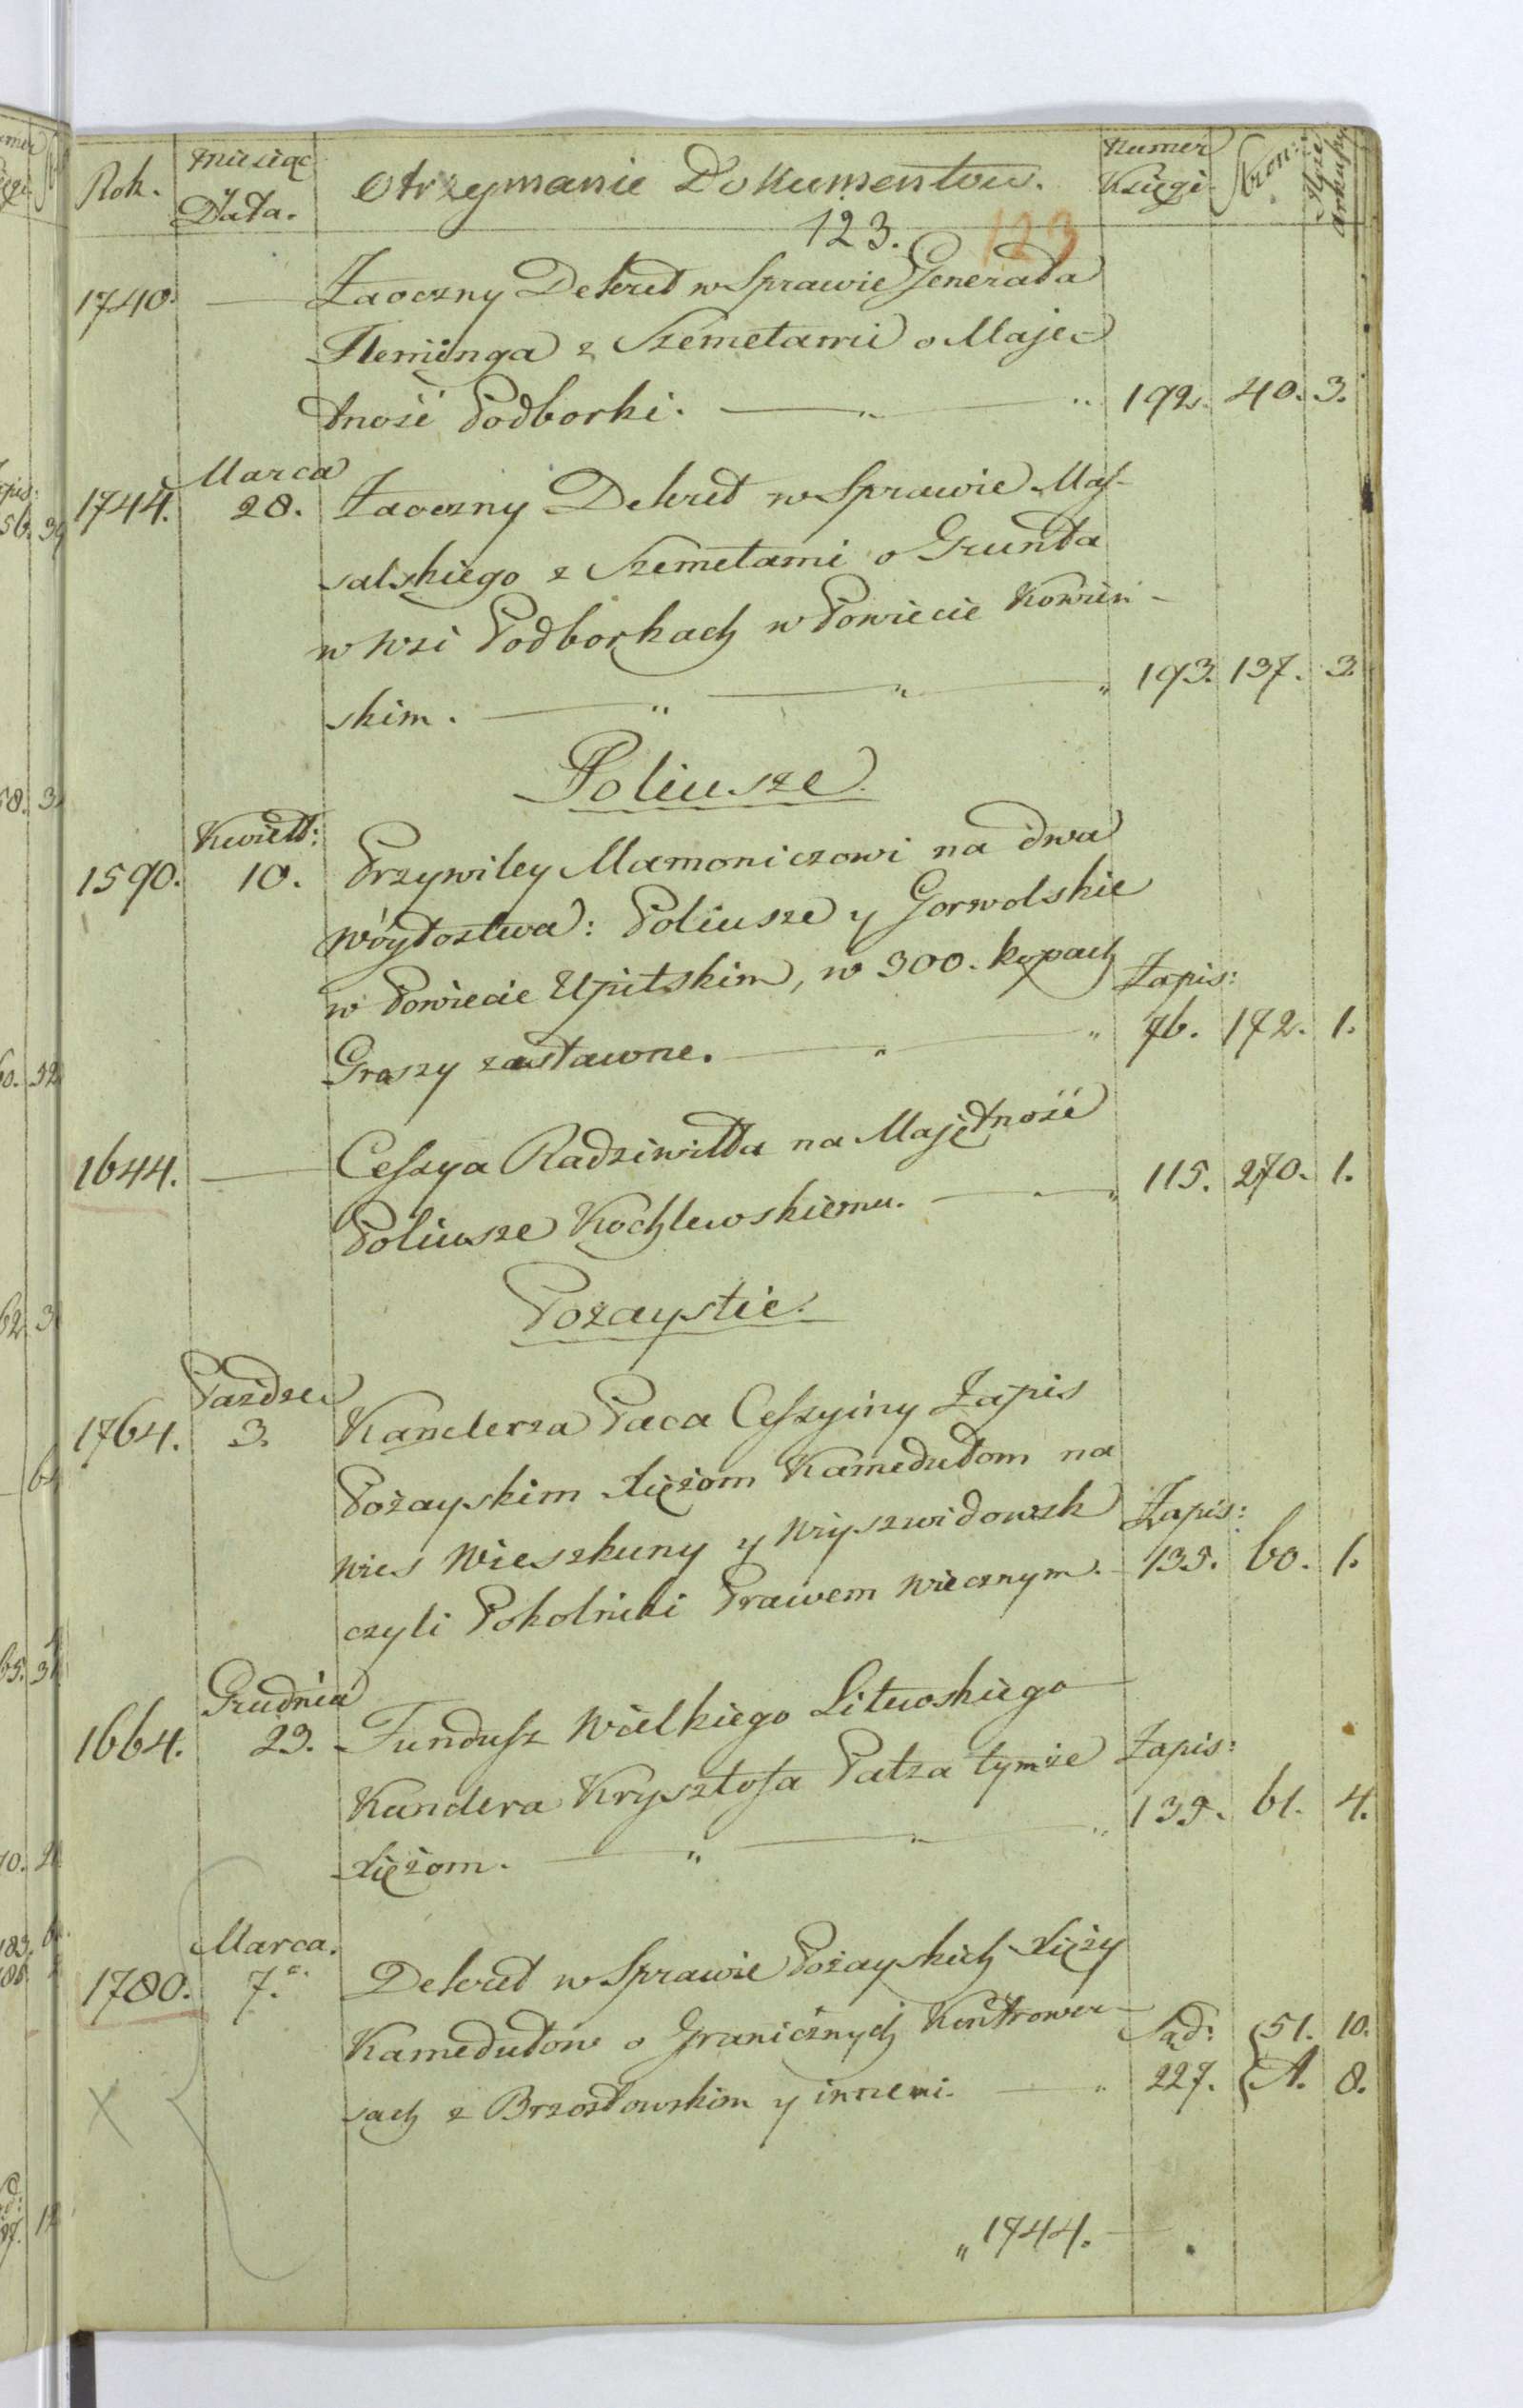 Rok. Miesiąc Data. Otrzymanie Dokumentow. Numer Księgi Stron: Ilość arkuszy
123. 123
1740. — Zaoczny Dekret w Sprawie Generała
Fleminga z Szemetami o Maję-
tność Podborki. — „ — „ 192. 40. 3.
Marca
1744. 28. Zaoczny Dekret w Sprawie Mas-
salskiego z Szemetami o Grunta
w Wsi Podborkach w Powiecie Kowień-
skim. — „ — „ — „ 193. 137. 3.
Poliusze.
Kwiet:
1590. 10. Przywiley Mamoniczowi na dwa
Wóytostwa: Poliusze y Gorwolskie
w Powiecie Upitskim, w 300. kopach Zapis:
Groszy zastawne. — „ — „ 76. 172. 1.
1644. — Cessya Radziwiłła na Majętność
Poliusze Kochlewskiemu. — „ — „ 115. 270. 1.
Pożaystie.
Paźdze
1764. 3. Kanclerza Paca Cessyiny Zapis
Pożayskim Xiężom Kamedułom na
Wies Wieszkuny y Wyszwidowsk Zapis:
czyli Pokolniki Prawem Wiecznym. 139. 60. 1.
Grudnia
1664. 23. Fundusz Wielkiego Litewskiego
Kanclera Krysztofa Patza tymże Zapis:
Xiężom. — „ — „ — „ 139. 61. 4.
Marca.
1780. 7. Dekret w Sprawie Pożayskich Xięży
Kamedułow o Granicznych Kontrower- Sąd: 51. 10.
sach z Brzostowskim y innemi. — „ 227. A. 8.
„ 1744. —